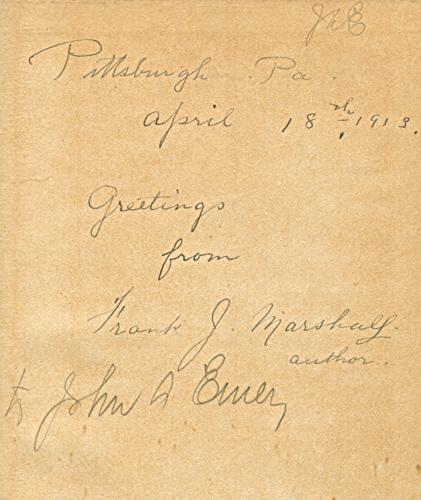 JAE
Pittsburgh Pa.
April 18th, 1913.
Greetings
from
Frank J. Marshall.
author.
to John A Emery